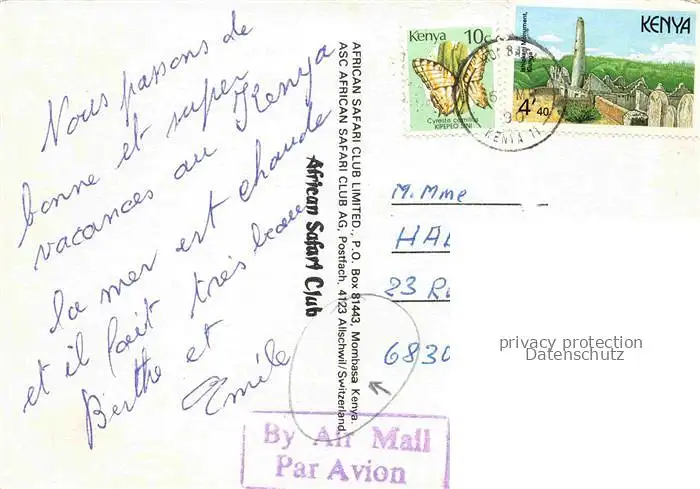 Nous passons de
bonne et super
vacances au Kenya
la mer est chaude
et il fait très beau
Berthe et
Emile
AFRICAN SAFARI CLUB LIMITED., P.O. Box 81443, Mombasa Kenya.
ASC AFRICAN SAFARI CLUB AG, Postfach, 4123 Allschwil/Switzerland
African Safari Club
By Air Mail
Par Avion
Kenya 10c
Cyrestis camillus
KIPEPEO
KENYA
4/40
90
KENYA
M. Mme
HA
23 R
6830
privacy protection
Datenschutz